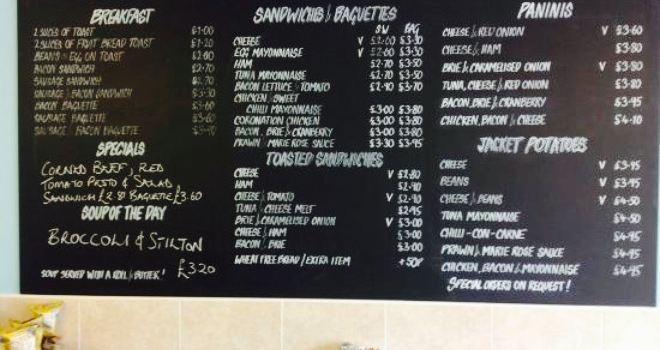 BREAKFAST
2 SLICES OF TOAST £1.00
2 SLICES OF FRUIT BREAD TOAST £1.20
BEANS OR EGG ON TOAST £2.80
BACON SANDWICH £2.70
SAUSAGE SANDWICH £2.70
SAUSAGE & BACON SANDWICH £3.30
BACON BAGUETTE £3.60
SAUSAGE BAGUETTE £3.60
SAUSAGE & BACON BAGUETTE
SPECIALS
CORNED BEEF, RED
TOMATO PESTO & SALAD
SANDWICH £2.80 BAGUETTE £3.60
SOUP OF THE DAY
BROCCOLI & STILTON
SOUP SERVED WITH A ROLL & BUTTER! £3.20
SANDWICHES & BAGUETTES
S/W BAG
CHEESE V £2.60 £3.30
EGG MAYONNAISE V £2.60 £3.30
HAM £2.70 £3.50
TUNA MAYONNAISE £2.70 £3.50
BACON LETTUCE & TOMATO £2.90 £3.70
CHICKEN, SWEET
CHILLI MAYONNAISE £3.00 £3.80
CORONATION CHICKEN £3.00 £3.80
BACON, BRIE & CRANBERRY £3.00 £3.80
PRAWN & MARIE ROSE SAUCE £3.30 £3.95
TOASTED SANDWICHES
CHEESE V £2.80
HAM £2.90
CHEESE & TOMATO V £2.90
TUNA & CHEESE MELT £2.95
BRIE & CARAMELISED ONION V £3.00
CHEESE & HAM £3.00
BACON & BRIE £3.00
WHEAT FREE BREAD / EXTRA ITEM + 50P
PANINIS
CHEESE & RED ONION V £3.60
CHEESE & HAM £3.80
BRIE & CARAMELISED ONION V £3.80
TUNA, CHEESE & RED ONION £3.80
BACON, BRIE & CRANBERRY £3.95
CHICKEN, BACON & CHEESE £4.10
JACKET POTATOES
CHEESE V £3.95
BEANS V £3.95
CHEESE & BEANS V £4.50
TUNA MAYONNAISE £4.50
CHILLI-CON-CARNE £4.95
PRAWN & MARIE ROSE SAUCE £4.95
CHICKEN, BACON & MAYONNAISE £4.95
SPECIAL ORDERS ON REQUEST!